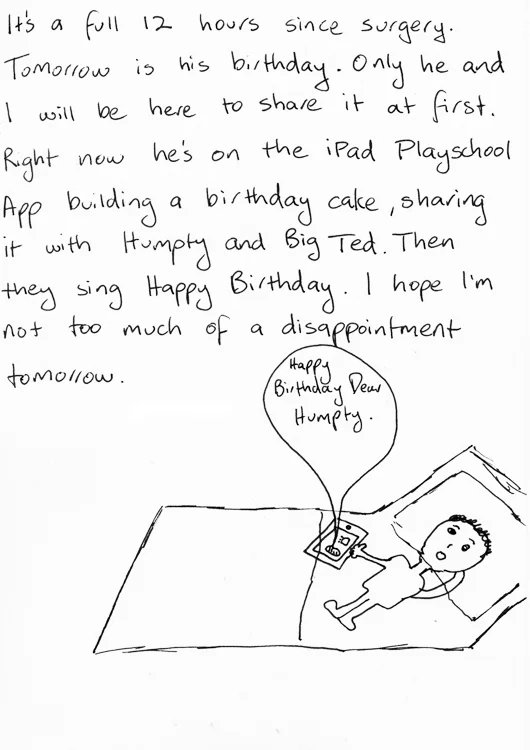 It's a full 12 hours since surgery.
Tomorrow is his birthday. Only he and
I will be here to share it at first.
Right now he's on the iPad Playschool
App building a birthday cake, sharing
it with Humpty and Big Ted. Then
they sing Happy Birthday. I hope I'm
not too much of a disappointment
tomorrow.
Happy
Birthday Dear
Humpty.